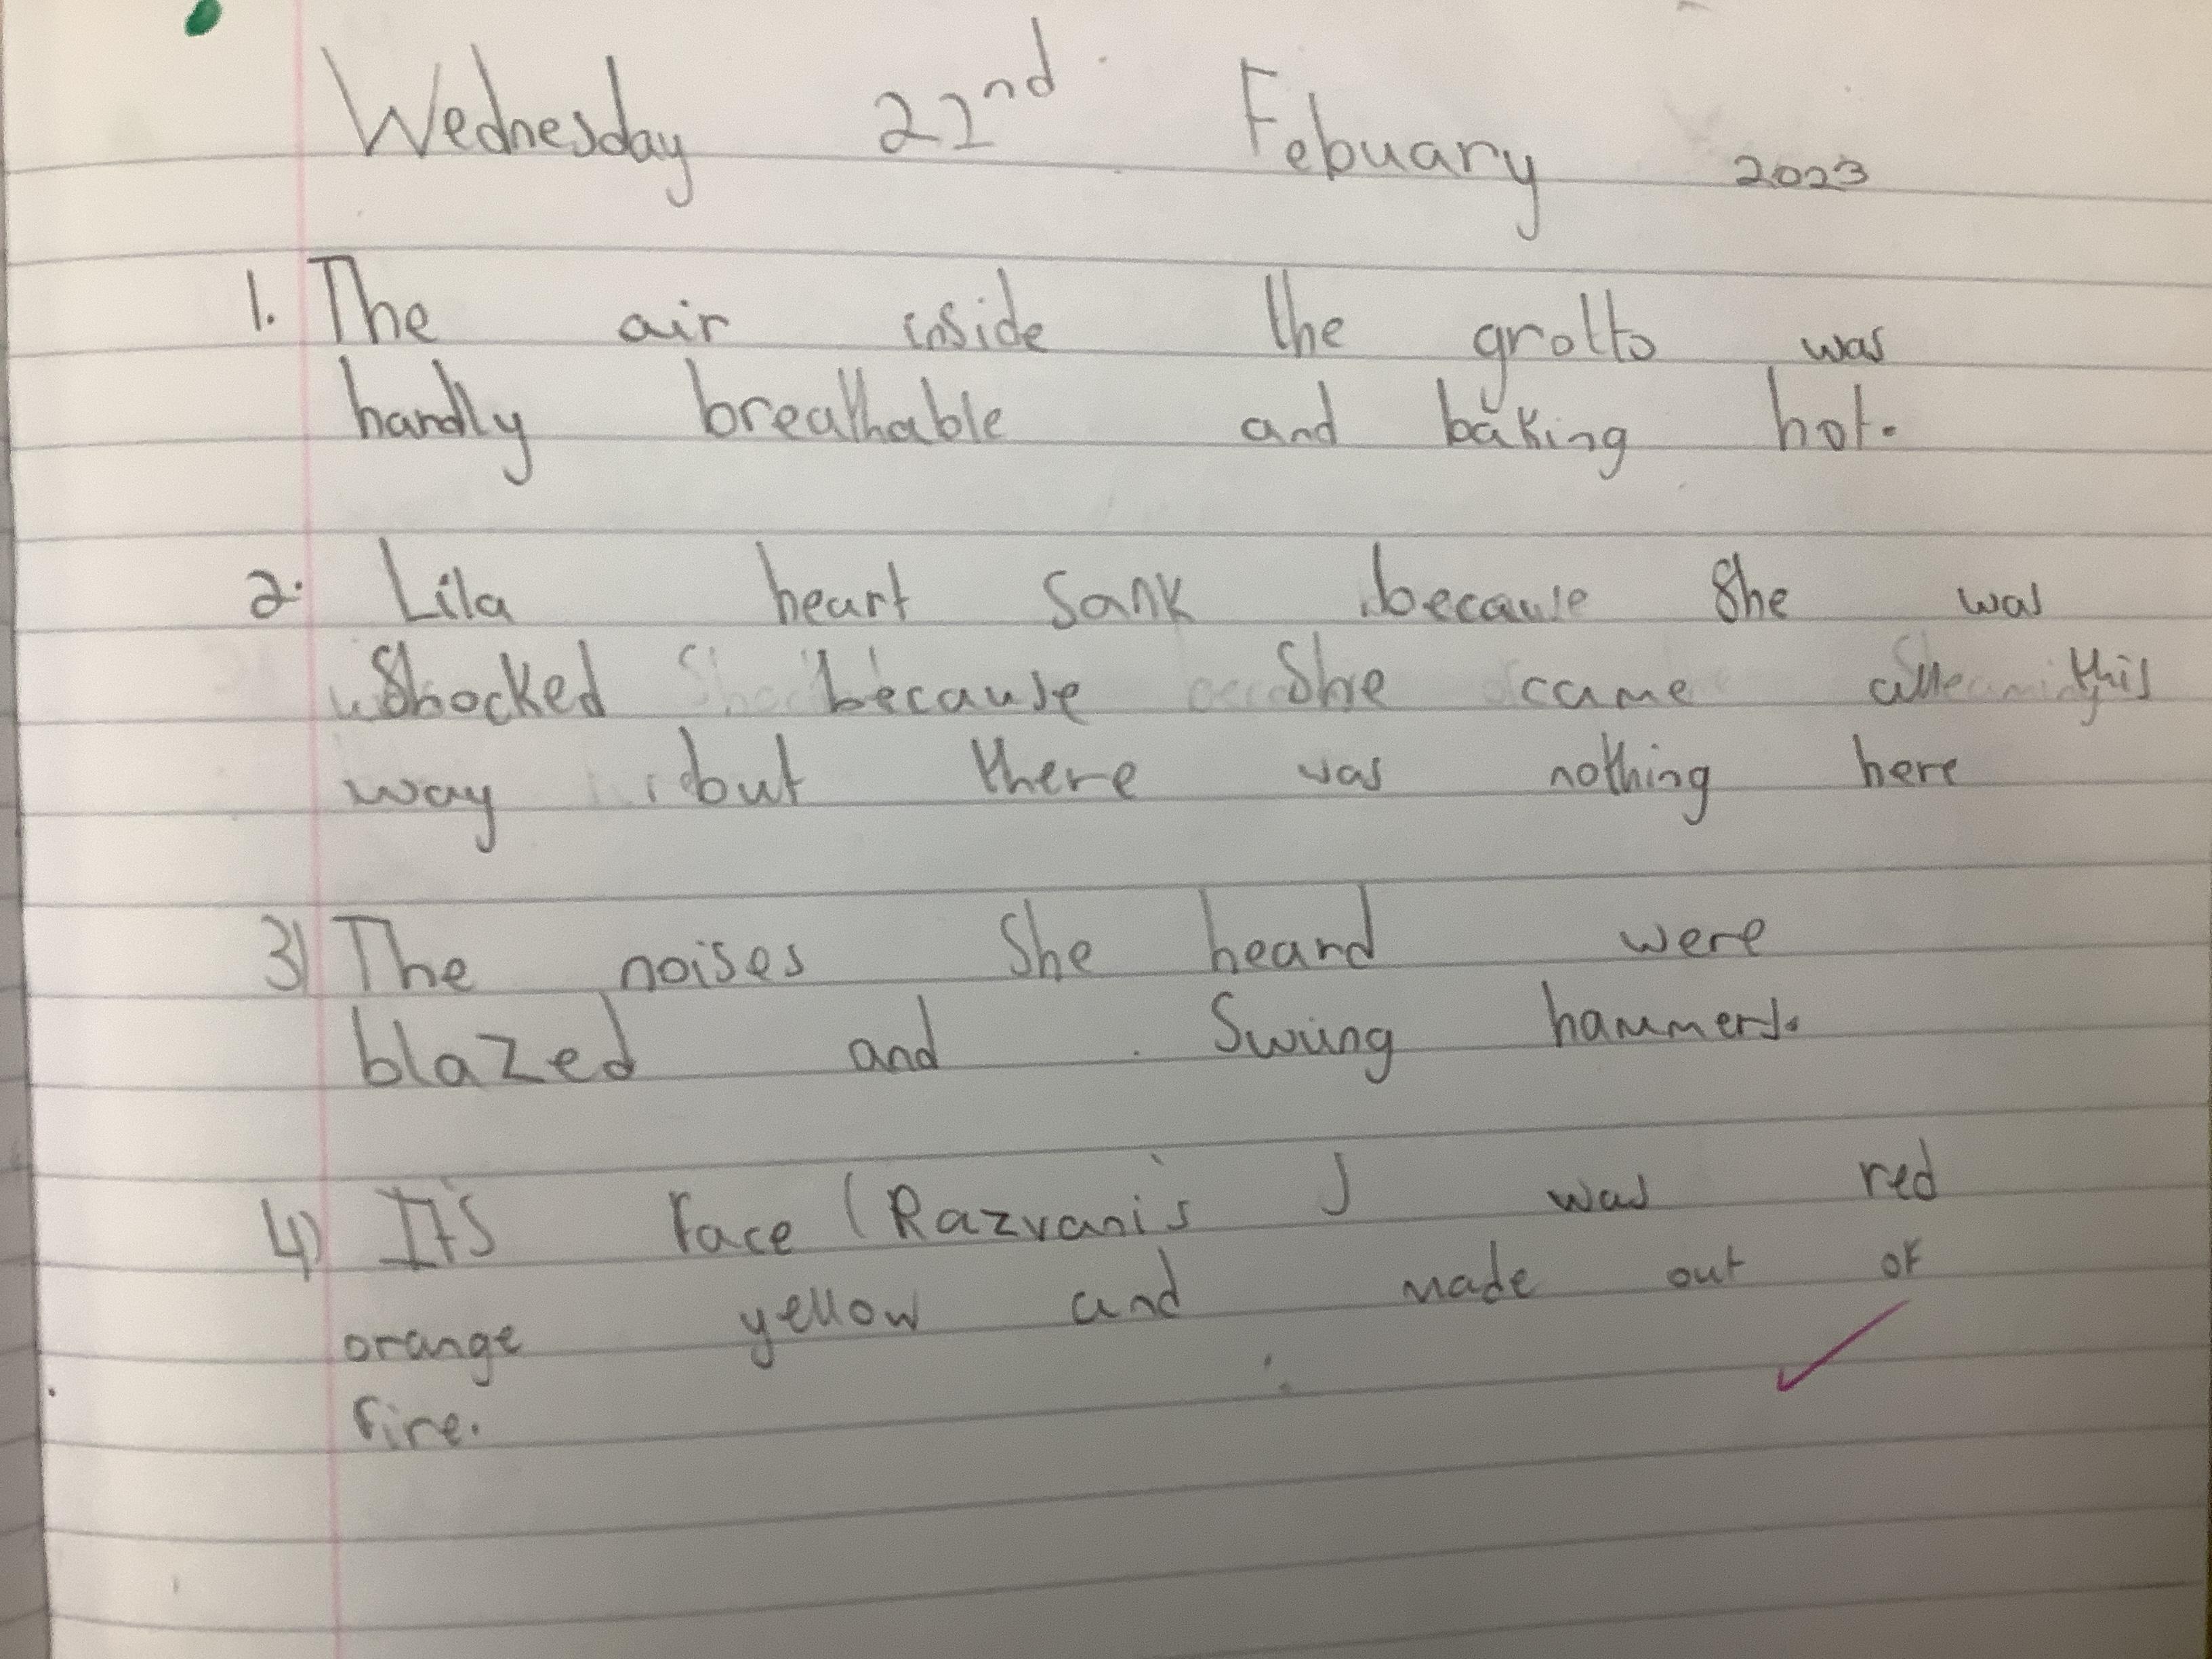 Wednesday 22nd Febuary 2023
1. The air inside the grotto was
hardly breathable and baking hot.
2. Lila heart sank because she was
shocked because she came all this
way but there was nothing here
3) The noises she heard were
blazed and swung hammers.
4) It's face (Razvani's ) was red
orange yellow and made out of
fire.